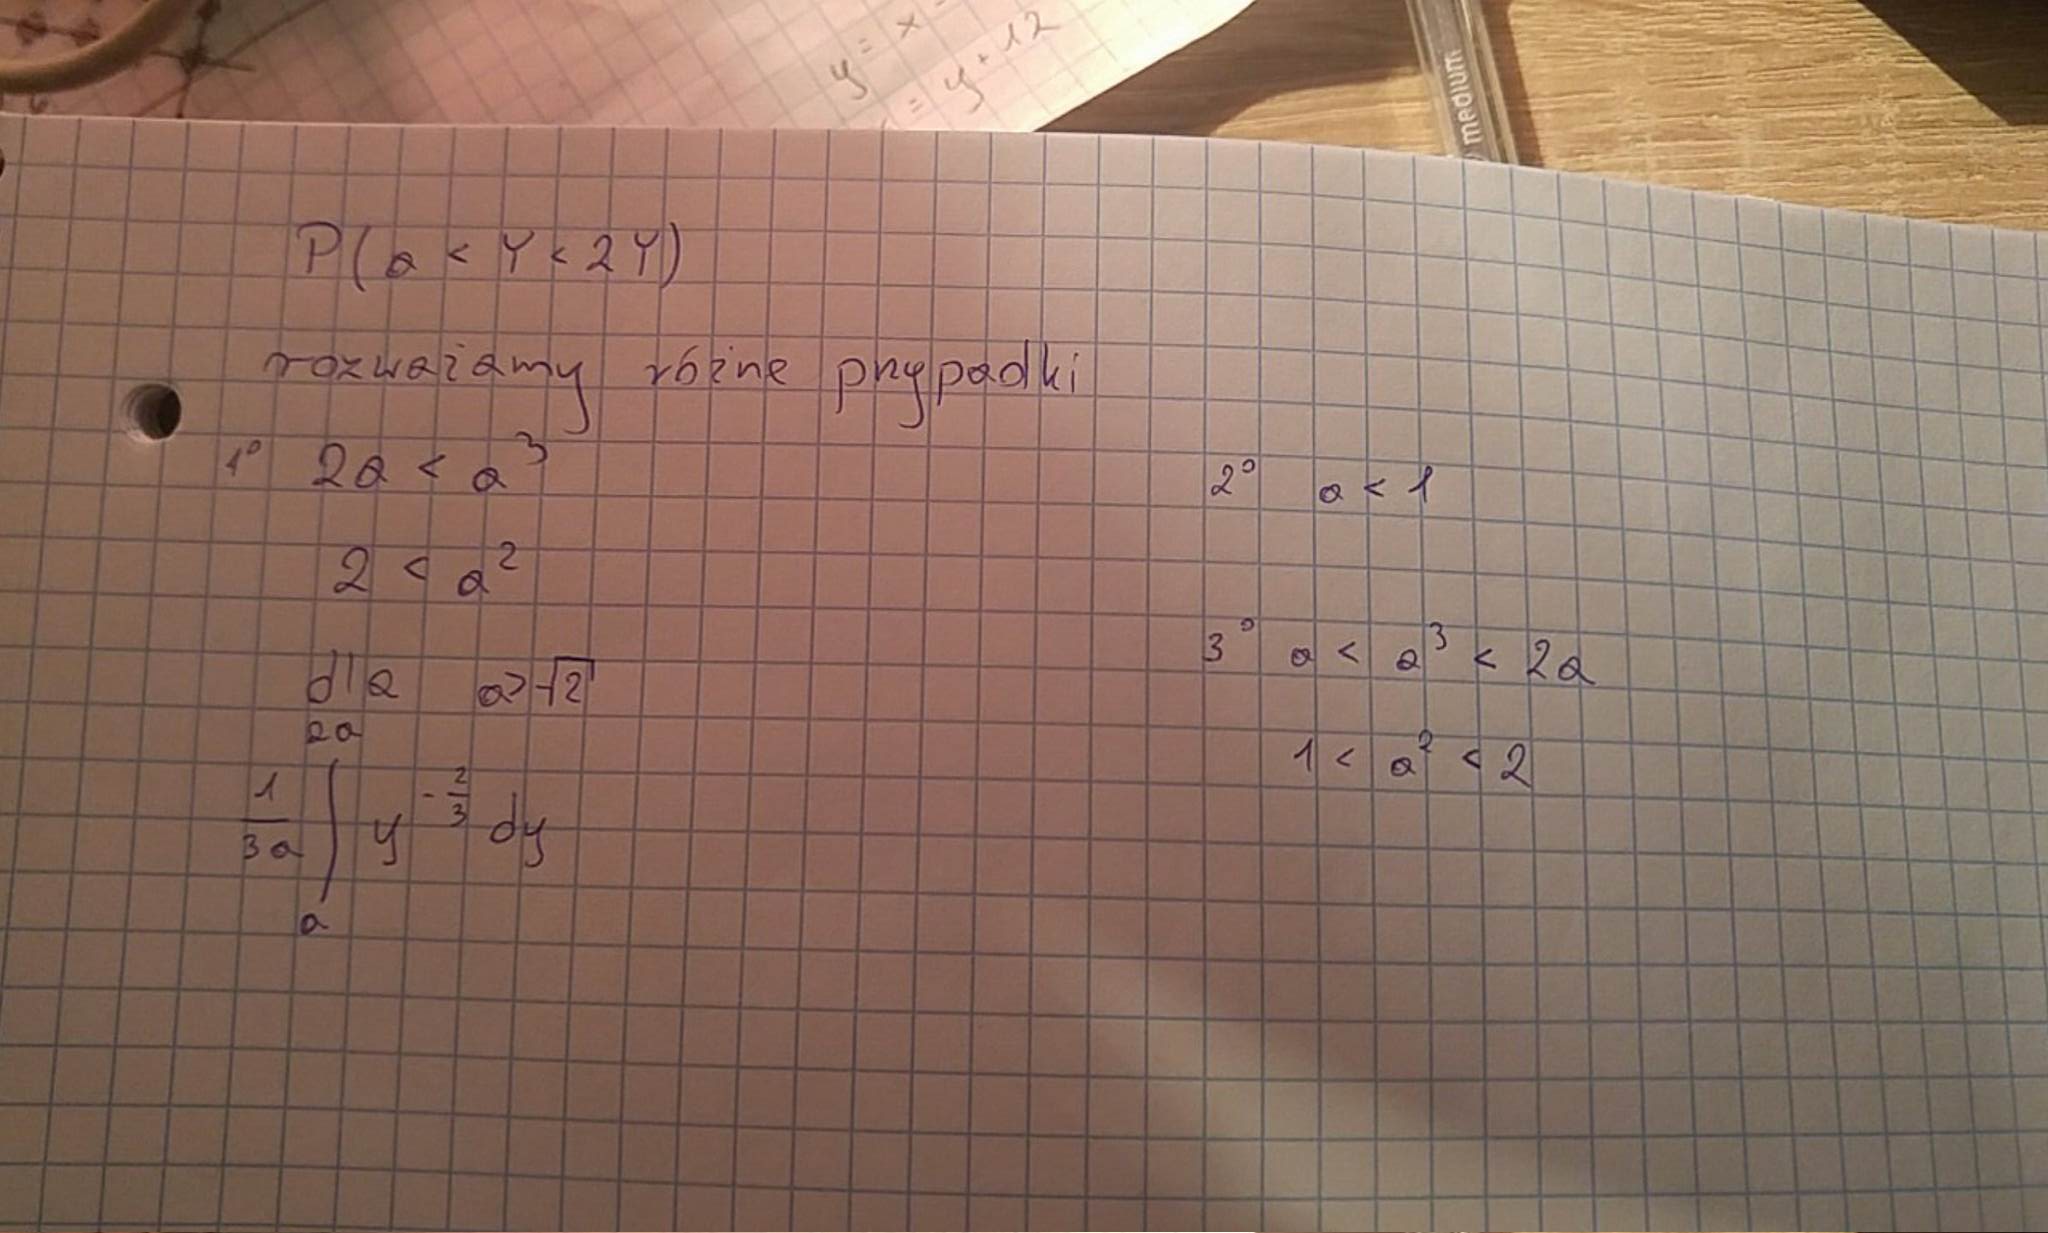 y = x -
= y + 12
medium
P(a < Y < 2Y)
rozważamy różne przypadki
1° 2a < a³
2 < a²
dla a > √2
2a
1/3a ∫ y^(-2/3) dy
a
2° a < 1
3° a < a³ < 2a
1 < a² < 2